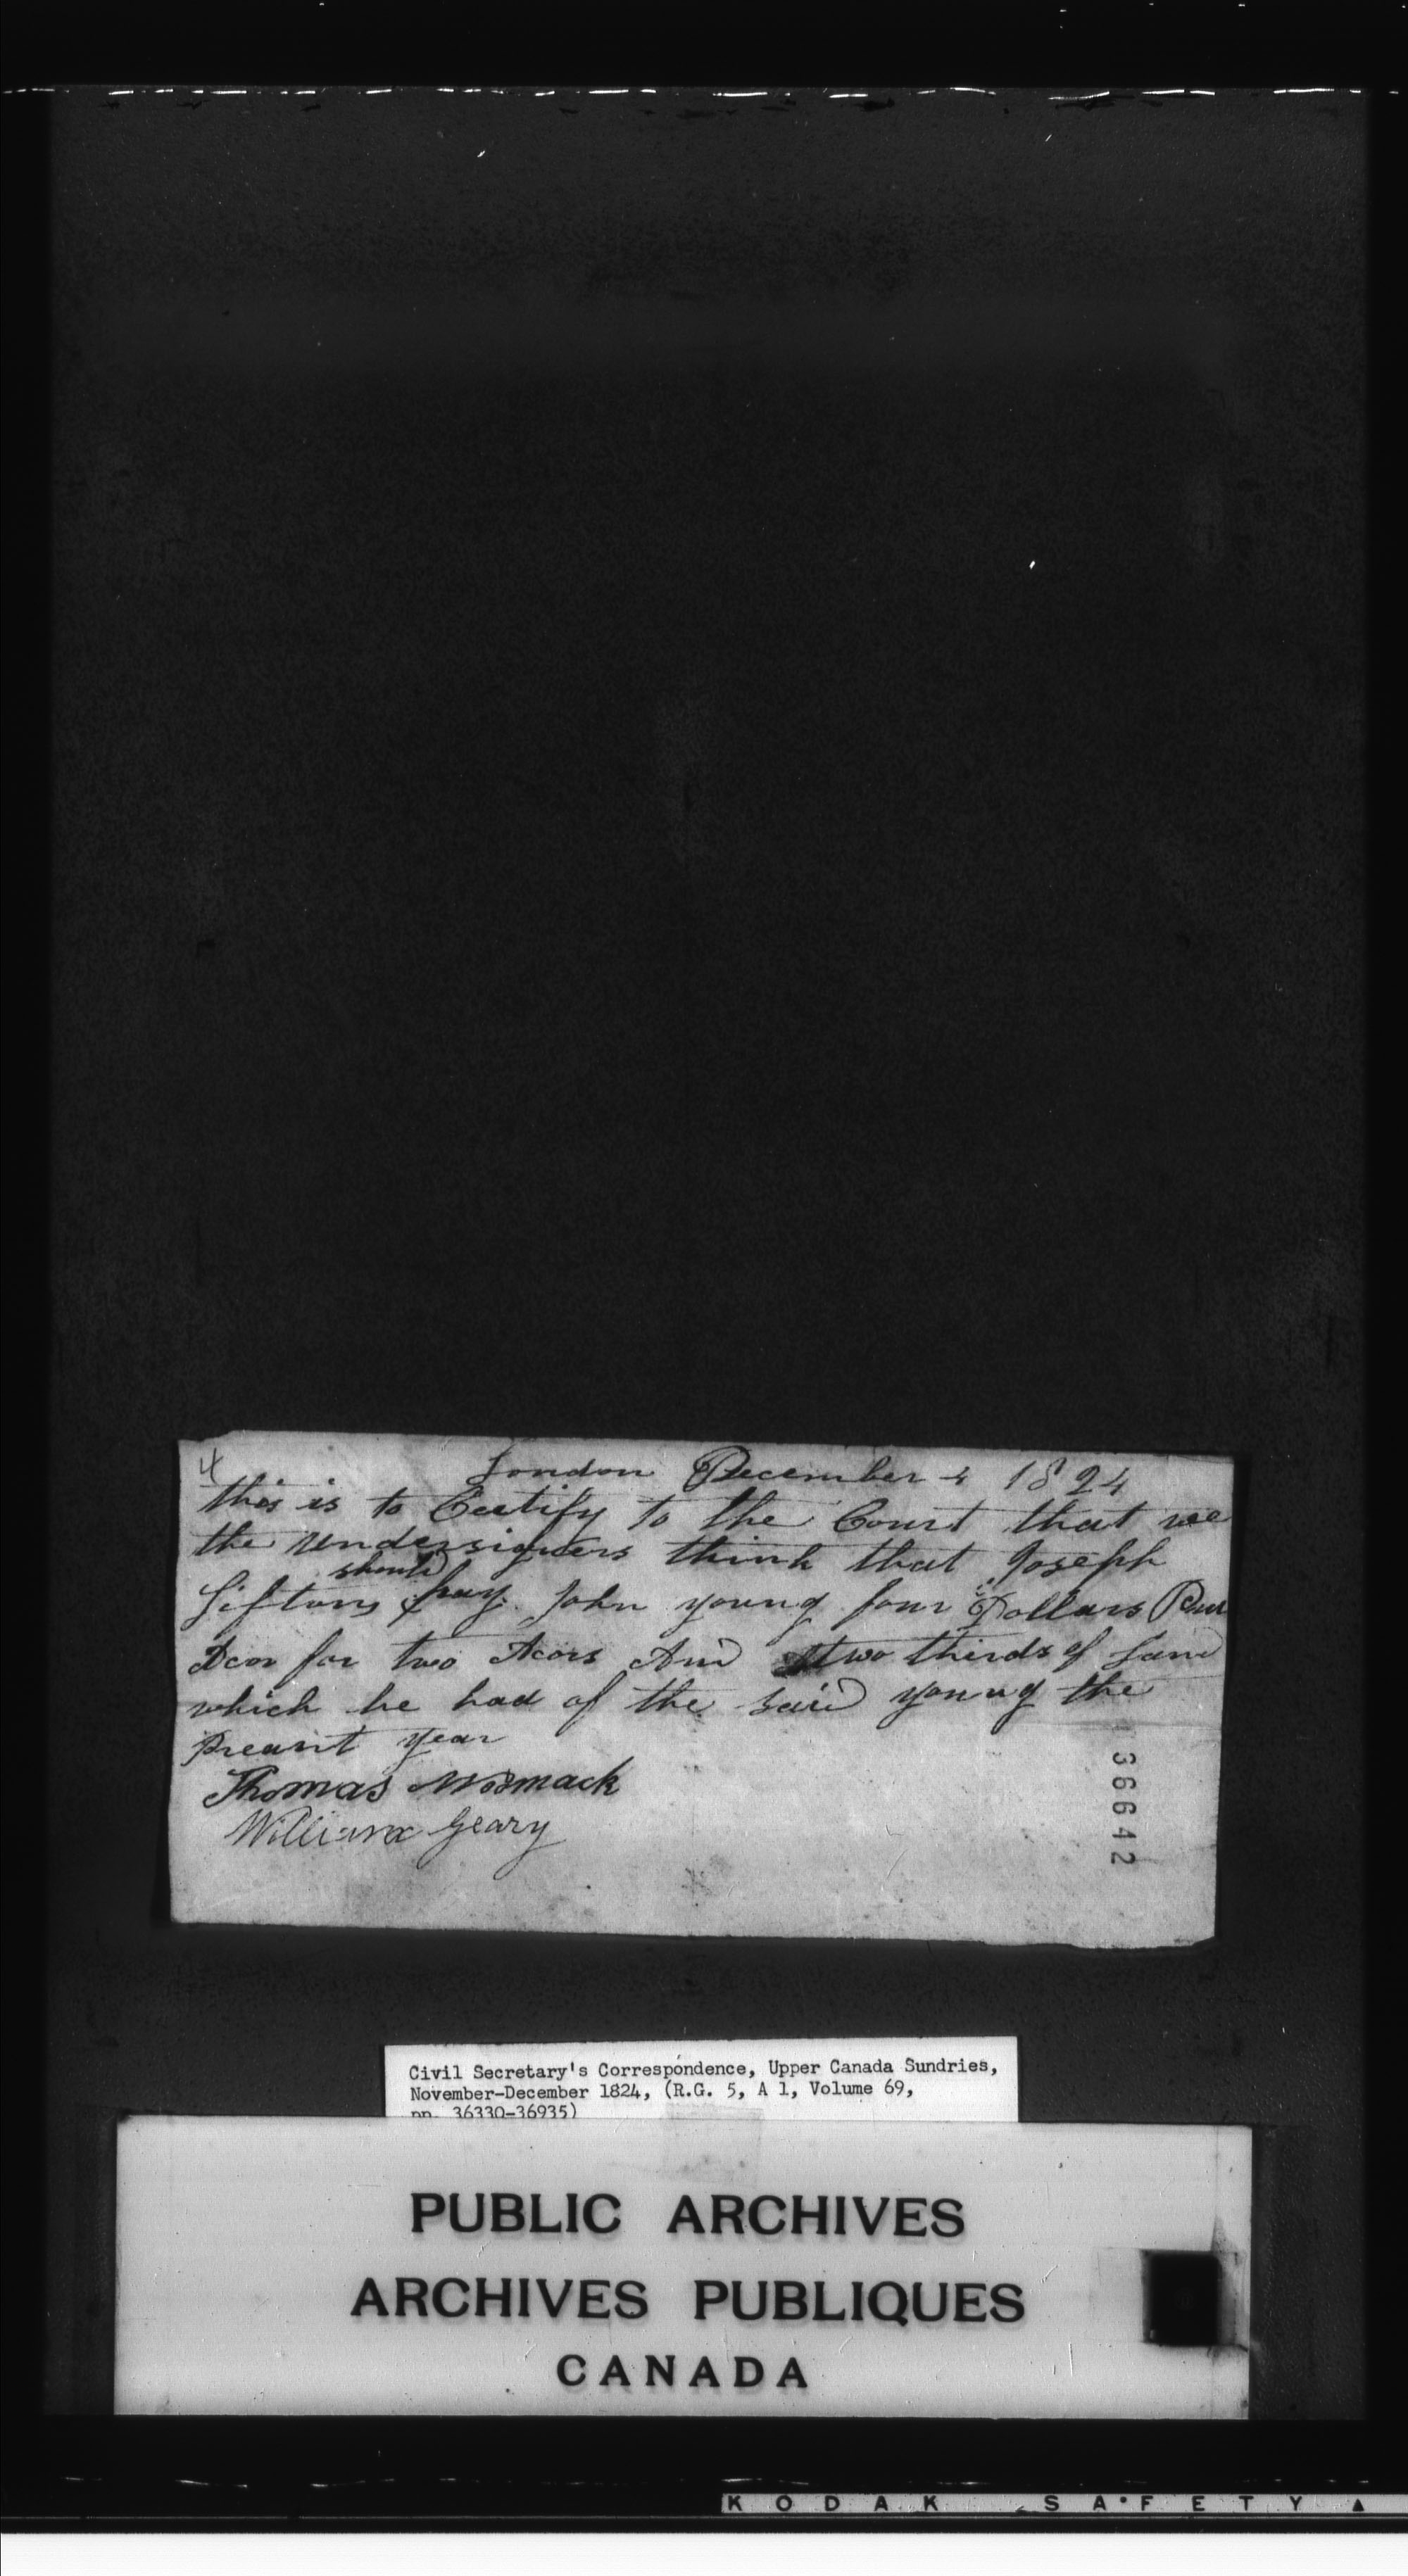 4
London December 4 1824
this is to Ceetify to the Court that we
the undersigners think that Joseph
should
Siftons pay John young four Dollars Pur
Acor for two Acors And two thirds of Land
which he had of the said young the
Preasnt year
Thomas Wormack
William Geary
36642
Civil Secretary's Correspondence, Upper Canada Sundries,
November-December 1824, (R.G. 5, A 1, Volume 69,
pp. 36330-36935)
PUBLIC ARCHIVES
ARCHIVES PUBLIQUES
CANADA
KODAK SAFETY